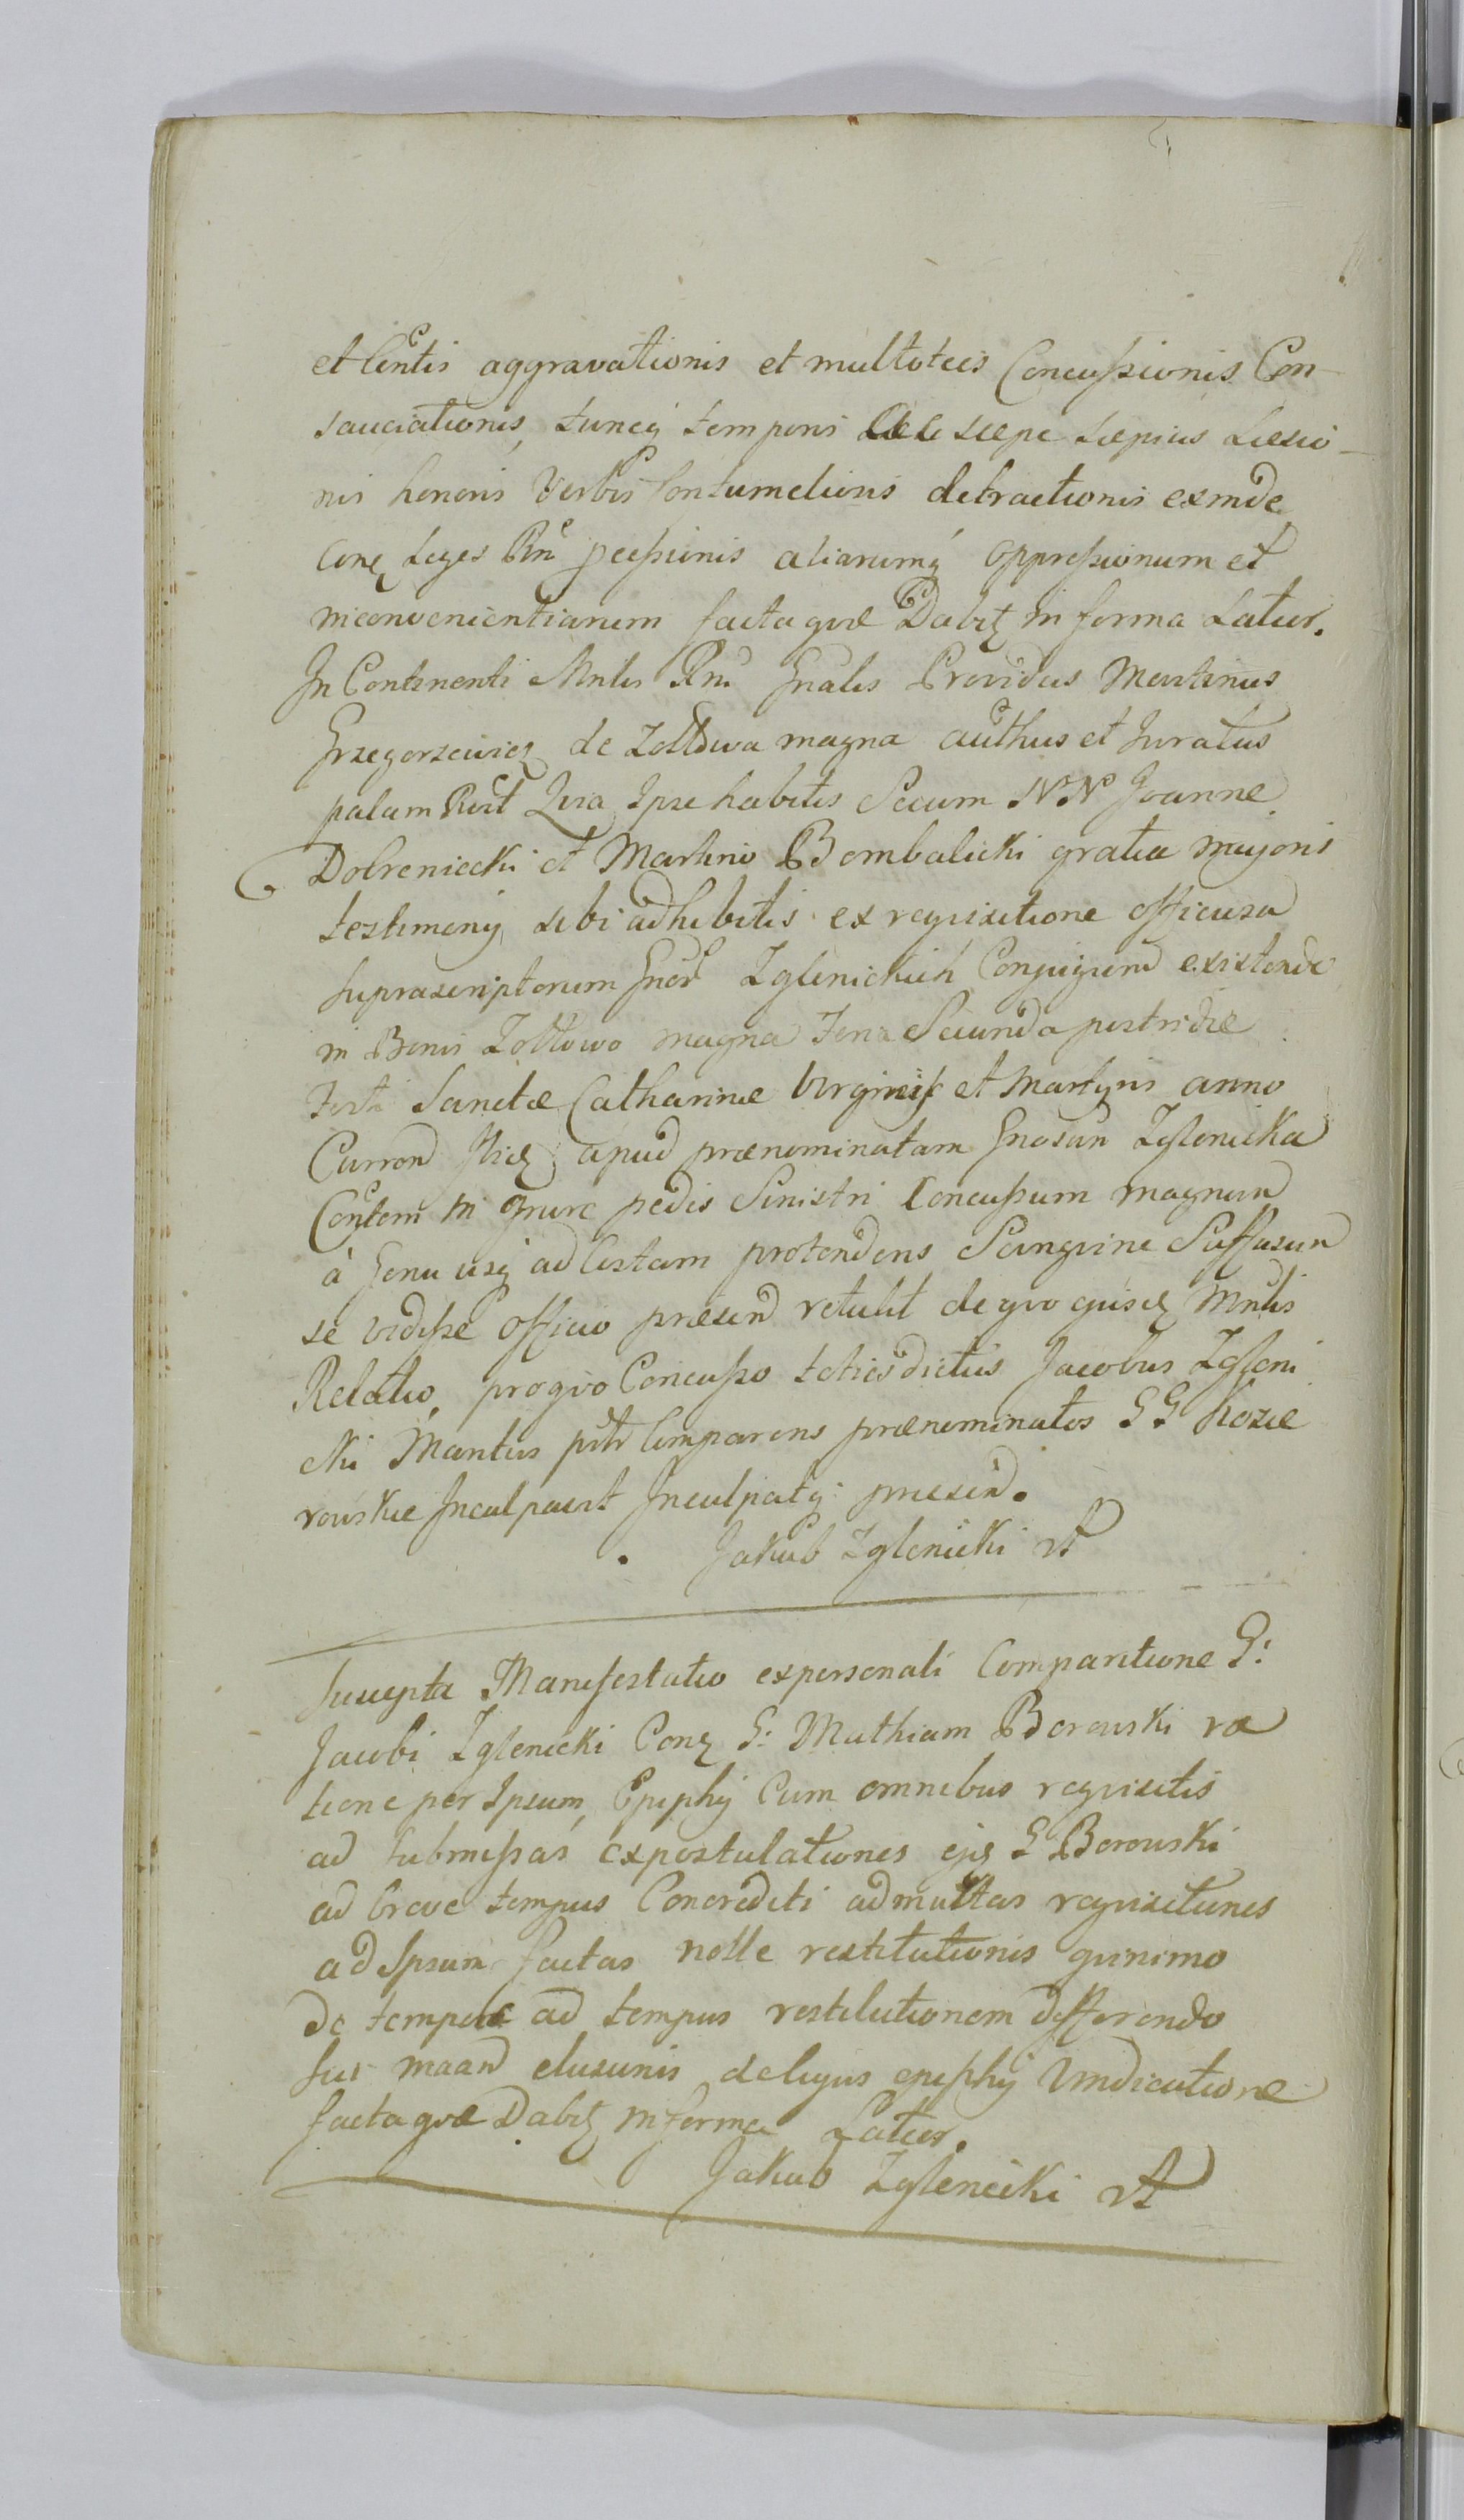 et Centis aggravationis et multoties Concussionis Con-
sauciationis, tuncq temporis saepe saepius Laesio-
nis honoris Verbis Contumeliosis detractionis exinde
Conq Leges Rni peessionis aliarumq oppressionum et
inconvenientiarum facta quae Dabit in forma Latius.
In Continenti Mnlis Rni Gnalis Providus Martinus
Grzegorzewicz de Zołtowa magna authus et Juratus
palam Rect Qvia Ipse habitis Secum NN Joanne
Dobreniecki et Martino Bembalicki gratia majoris
testimonij sibi adhibitis ex requisitione officiosa
suprascriptorum Gnor Zglenickich Conjugum existende
in Bonis Zołtowo magna Feria Secunda postridie
Festi Sanctae Catharinae Virginis et Martyris anno
Curren apud praenominatam Gnosam Zglenicka
Contem in Crure pedis Sinistri Concussum magnum
à Genu usq ad Costam protendens Sanguine Suffusum
se vidisse officio praesen retulit de quo ejusd Mnlis
Relatio, pro quo Concusso toties dictus Jacobus Zgleni
cki Maritus pntr Comparens praenominatos GG Kozie
rowskie Inculpavit Inculpatq praesen.
Jakub Zglenicki
Suscepta Manifestatio ex personali Comparitione G:
Jacobi Zglenicki Conq G: Mathiam Borowski ra
tione per Ipsum, Epiphij Cum omnibus requisitis
ad submissas expostulationes ejq G Borowski
ad breve tempus Concrediti ad multas requisitiones
ad Ipsum factas nolle restitutionis quinimo
de tempore ad tempus restitutionem differendo
elusionis de cujus epiphij Vindicatione
facta quae Dabit in forma Latius.
Jakub Zglenicki